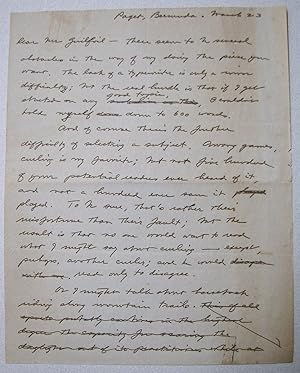 Paget, Bermuda. March 23
Dear Mr Guilfoil – There seem to be several
obstacles in the way of my doing the piece you
want. The lack of a typewriter is only a minor
difficulty; but the real hurdle is that if I get
started on any good topic, I couldn't
hold myself down to 600 words.
And of course there's the further
difficulty of selecting a subject. Among games,
curling is my favorite; but not five hundred
of your potential readers ever heard of it,
and not a hundred ever saw it
played. To be sure, that's rather their
misfortune than their fault; but the
result is that no one would want to read
what I might say about curling – except,
perhaps, another curler; and he would
read only to disagree.
Or I might talk about horseback
riding along mountain trails. This of all
sports probably combines in the highest
degree the capacity for scaring the
daylights out of its practitioners while at